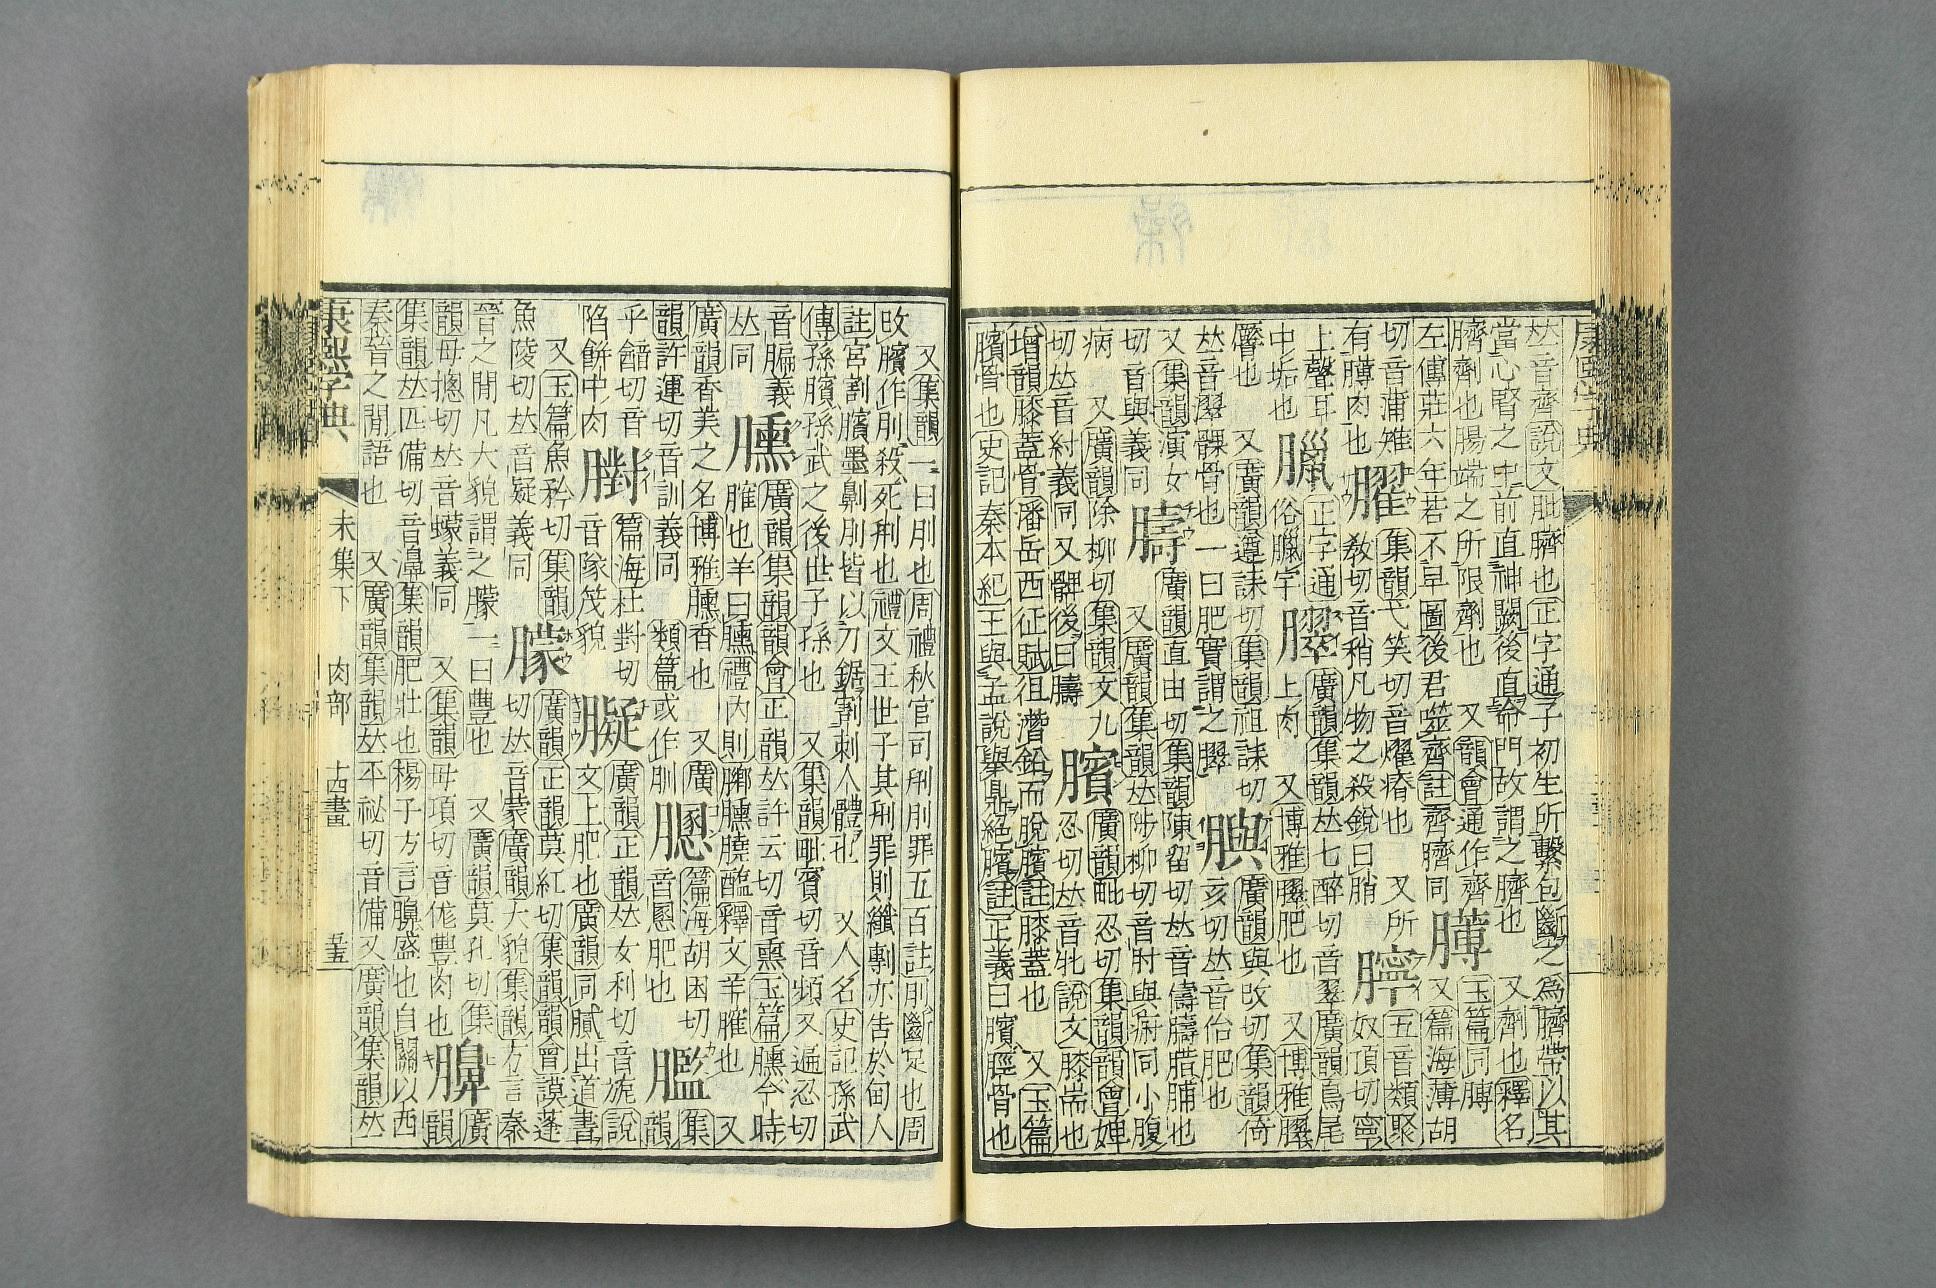 𠀤音齊說文肶臍也正字通子初生所繫包斷之爲臍帶以其
當心腎之中前直神闕後直命門故謂之臍也 又劑也釋名
臍劑也腸端之所限劑也 又韻會通作齊 膊 玉篇同膊
左傳莊六年若不早圖後君噬齊註齊臍同 又篇海薄胡
切音蒲雉 集韻弋笑切音燿瘠也 又所 五音類聚
有膊肉也 教切音稍凡物之殺銳曰脴 奴頂切寧
上聲耳 正字通 廣韻集韻𠀤七醉切音翠廣韻鳥尾
中垢也 俗臘字 上肉 又博雅臎肥也 又博雅臎
髎也 又廣韻遵誄切集韻祖誄切 廣韻與改切集韻倚
𠀤音澤髁骨也一曰肥實謂之臎 亥切𠀤音佁肥也
又集韻演女 廣韻直由切集韻陳留切𠀤音儔臅腊脯也
切音與義同 又廣韻集韻𠀤陟柳切音肘與疛同小腹
病 又廣韻除柳切集韻文九 廣韻毗忍切集韻韻會婢
切𠀤音紂義同又髀後曰 臏 忍切𠀤音牝說文膝耑也
增韻膝蓋骨潘岳西征賦徂潛鉛而脫臏註膝蓋也 又玉篇
臏骨也史記秦本紀王與孟說舉鼎絕臏註正義曰臏脛骨也
又集韻一曰刖也周禮秋官司刑刖罪五百註刖斷足也周
改臏作刖殺死刑也禮文王世子其刑罪則纖剸亦告於甸人
註宮割臏墨劓刖皆以刀鋸割刺人體也 又人名史記孫武
傳孫臏孫武之後世子孫也 又集韻毗賓切音頻又逼忍切
音腁義 臐 廣韻集韻韻會正韻𠀤許云切音熏玉篇臐今時
𠀤同 臛也羊曰臐禮內則膷臐膮醢釋文羊臛也 又
廣韻香美之名博雅臐香也 又廣 篇海胡困切 集
韻許運切音訓義同 類篇或作䐏 音慁肥也 韻
乎䤴切音 篇海杜對切 廣韻正韻𠀤女利切音旎說
陷餅中肉 音隊笩貌 文上肥也廣韻同膩出道書
又玉篇魚矜切集韻 廣韻正韻莫紅切集韻韻會謨蓬
魚陵切𠀤音疑義同 朦 切𠀤音蒙廣韻大貌集韻方言秦
晉之閒凡大貌謂之朦一曰豐也 又廣韻莫孔切集 廣
韻母摠切𠀤音蠓義同 又集韻母項切音㑻豐肉也 韻
集韻𠀤匹備切音濞集韻肥壯也楊子方言臱盛也自關以西
秦晉之閒語也 又廣韻集韻𠀤平祕切音備又廣韻集韻𠀤
康熙字典 未集下 肉部 十四畫